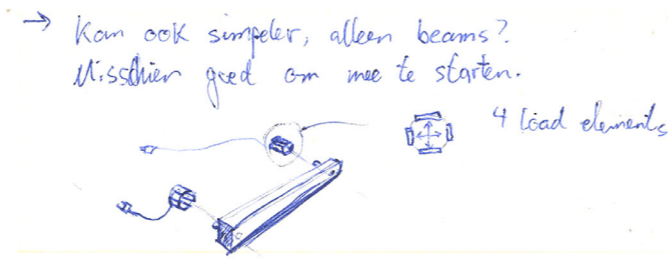 → Kan ook simpeler, alleen beams?
Misschien goed om mee te starten.
4 load elements